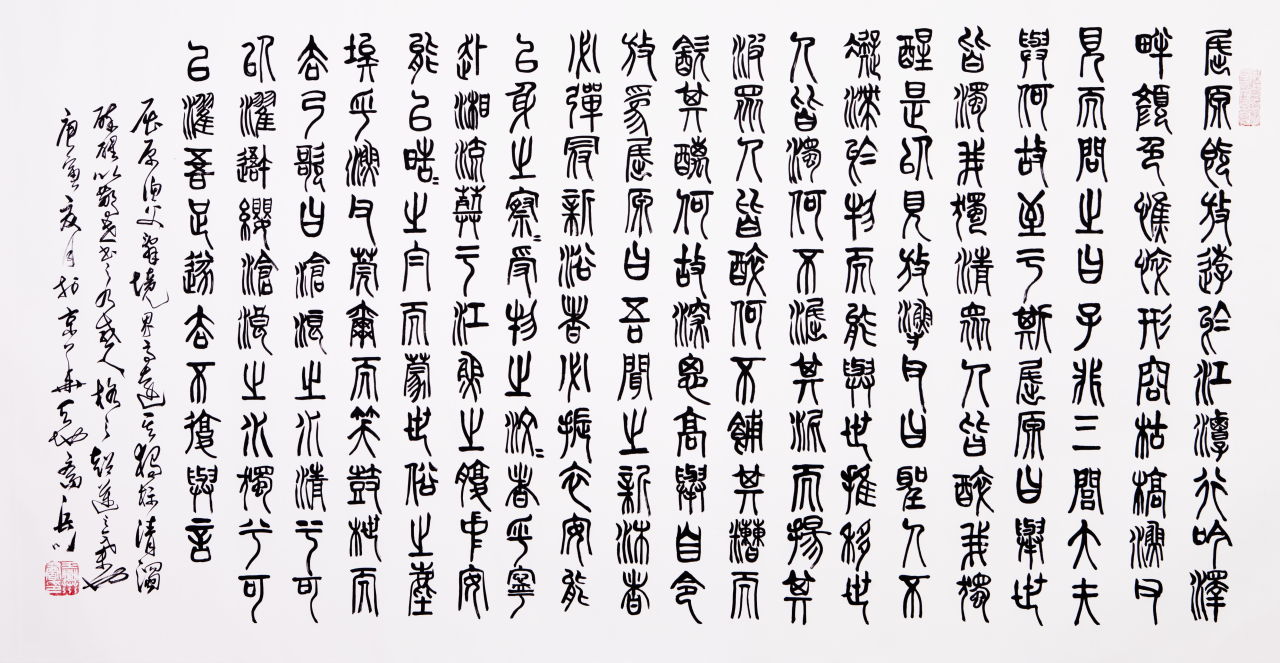 屈原既放遊於江潭行吟澤
畔顏色憔悴形容枯槁漁父
見而問之曰子非三閭大夫
與何故至于斯屈原曰舉世
皆濁我獨清眾人皆醉我獨
醒是以見放漁父曰聖人不
凝滯於物而能與世推移世
人皆濁何不淈其泥而揚其
波眾人皆醉何不餔其糟而
歠其醨何故深思高舉自令
放為屈原曰吾聞之新沐者
必彈冠新浴者必振衣安能
以身之察々受物之汶々者乎寧
赴湘流葬于江魚之腹中安
能以皓々之白而蒙世俗之塵
埃乎漁父莞爾而笑鼓枻而
去乃歌曰滄浪之水清兮可
以濯吾纓滄浪之水濁兮可
以濯吾足遂去不復與言
屈原漁父辭境界高遠其獨醒清濁
庚寅夏月於京華天地齋岳川